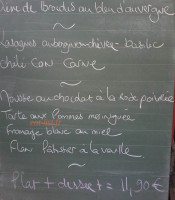 de Boudin au bleu d'auvergne
Lasagnes aubergine-chèvre-basilic
chili con Carne
Mousse au chocolat à la
Tarte aux Pommes meringuée
Fromage blanc au miel
Flan Patissier à la vanille
Plat + dessert = 11,90€